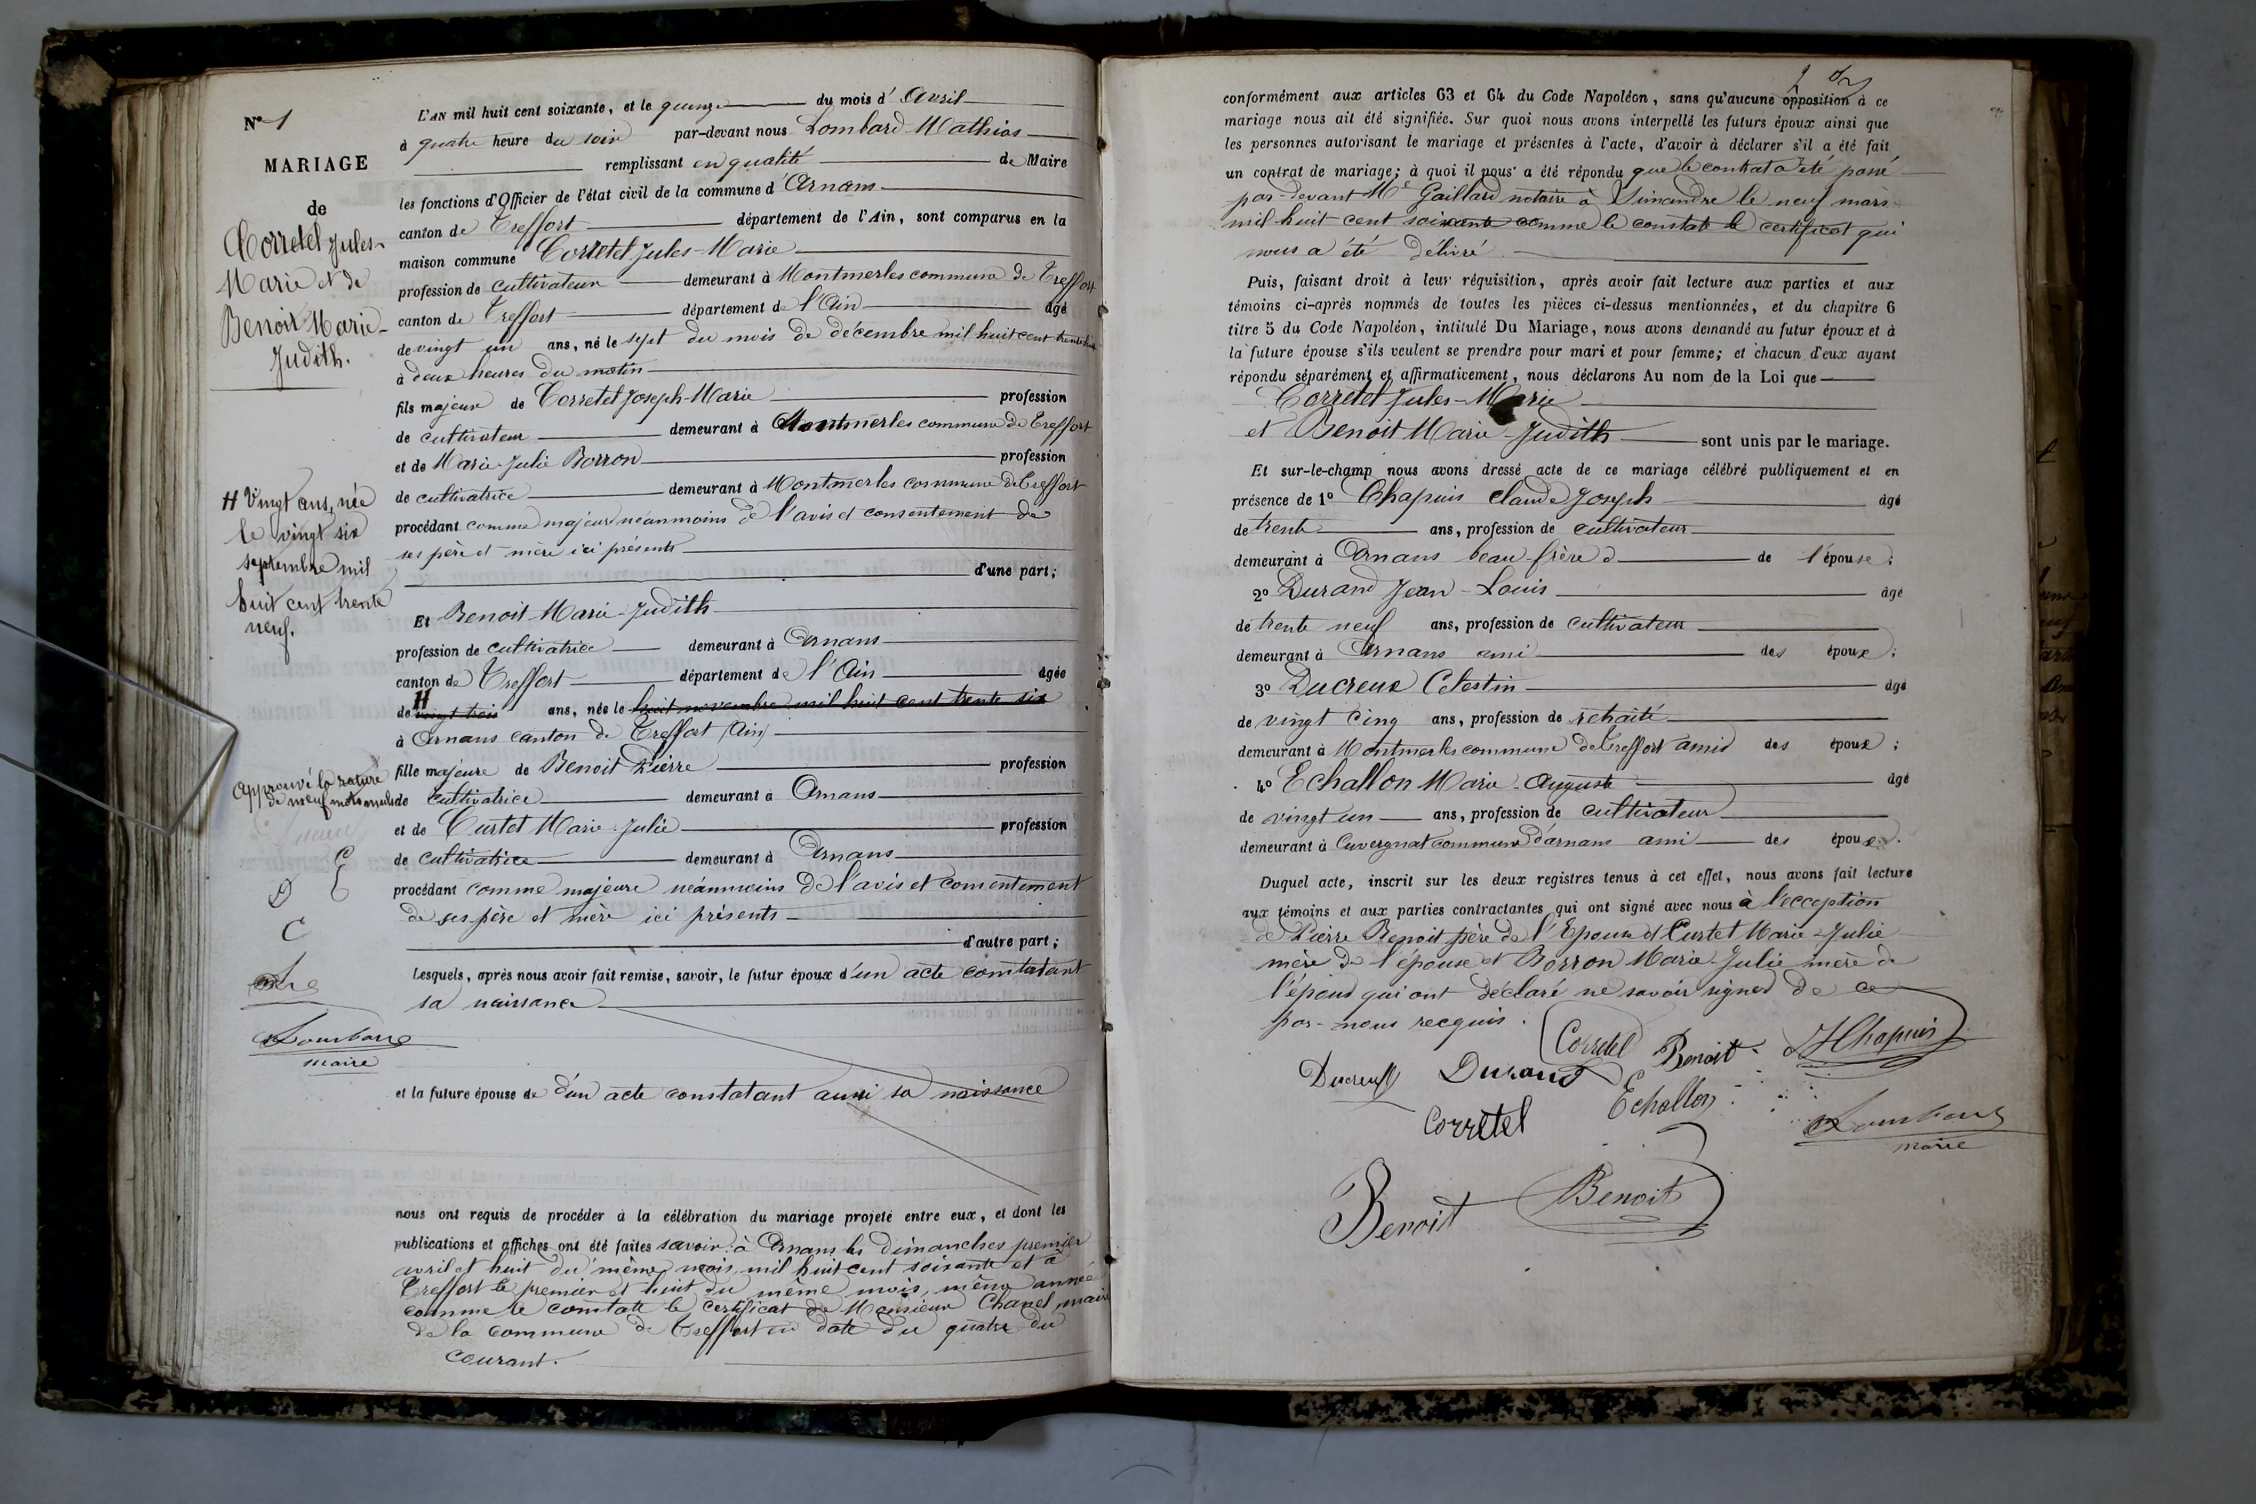 N° 1
MARIAGE
de
Corretel Jules-
Marie et de
Benoit Marie-
Judith.
H Vingt ans, née
le vingt six
septembre mil
huit cent trente
neuf.
Approuvé la rature
de neuf mots nuls
D C
E
C
Lombard
maire
L'AN mil huit cent soixante, et le quinze du mois d'Avril
à quatre heure du soir par-devant nous Lombard Mathias
remplissant en qualité de Maire
les fonctions d'Officier de l'état civil de la commune d'Arnans
canton de Treffort département de l'Ain, sont comparus en la
maison commune Corretel Jules-Marie
profession de cultivateur demeurant à Montmerles commune de Treffort
canton de Treffort département de l'Ain âgé
de vingt un ans, né le sept du mois de décembre mil huit cent trente huit
à deux heures du matin
fils majeur de Corretel Joseph-Marie profession
de cultivateur demeurant à Montmerles commune de Treffort
et de Marie-Julie Borron profession
de cultivatrice demeurant à Montmerles commune de Treffort
procédant comme majeur néanmoins de l'avis et consentement de
ses père et mère ici présents
d'une part;
Et Benoit Marie-Judith
profession de cultivatrice demeurant à Arnans
canton de Treffort département de l'Ain âgée
de H vingt trois ans, née le huit novembre mil huit cent trente six
à Arnans canton de Treffort (Ain)
fille majeure de Benoit Pierre profession
de cultivatrice demeurant à Arnans
et de Curtet Marie-Julie profession
de cultivatrice demeurant à Arnans
procédant comme majeure néanmoins de l'avis et consentement
de ses père et mère ici présents
d'autre part;
Lesquels, après nous avoir fait remise, savoir, le futur époux d'un acte constatant
sa naissance
et la future épouse de d'un acte constatant aussi sa naissance
nous ont requis de procéder à la célébration du mariage projeté entre eux, et dont les
publications et affiches ont été faites savoir: à Arnans les dimanches premier
avril et huit du même mois mil huit cent soixante et à
Treffort le premier et huit du même mois, même année
comme le constate le certificat de Monsieur Chanel, maire
de la commune de Treffort en date du quatre du
courant.
conformément aux articles 63 et 64 du Code Napoléon, sans qu'aucune opposition à ce
mariage nous ait été signifiée. Sur quoi nous avons interpellé les futurs époux ainsi que
les personnes autorisant le mariage et présentes à l'acte, d'avoir à déclarer s'il a été fait
un contrat de mariage; à quoi il nous a été répondu que le contrat a été passé
par-devant Me Gaillard notaire à Simandre le neuf mars
mil huit cent soixante comme le constate le certificat qui
nous a été délivré
Puis, faisant droit à leur réquisition, après avoir fait lecture aux parties et aux
témoins ci-après nommés de toutes les pièces ci-dessus mentionnées, et du chapitre 6
titre 5 du Code Napoléon, intitulé Du Mariage, nous avons demandé au futur époux et à
la future épouse s'ils veulent se prendre pour mari et pour femme; et chacun d'eux ayant
répondu séparément et affirmativement, nous déclarons Au nom de la Loi que
Corretel Jules-Marie
et Benoit Marie-Judith sont unis par le mariage.
Et sur-le-champ nous avons dressé acte de ce mariage célébré publiquement et en
présence de 1° Chapuis Claude Joseph âgé
de trente ans, profession de cultivateur
demeurant à Arnans beau-frère de l'épouse;
2° Durand Jean-Louis âgé
de trente neuf ans, profession de cultivateur
demeurant à Arnans ami des époux;
3° Ducreux Celestin âgé
de vingt cinq ans, profession de retraité
demeurant à Montmerles commune de Treffort amis des époux;
4° Echallon Marie-Auguste âgé
de vingt un ans, profession de cultivateur
demeurant à Cuvergnat commune d'arnans ami des époux.
Duquel acte, inscrit sur les deux registres tenus à cet effet, nous avons fait lecture
aux témoins et aux parties contractantes qui ont signé avec nous à l'ecception
de Pierre Benoit père de l'Epouse et Curtet Marie-Julie
mère de l'épouse et Borron Marie-Julie mère de
l'époux qui ont déclaré ne savoir signer de ce
par-nous recquis.
Corretel Benoit Chapuis
Ducreux Durand Echallon
Corretel Lombard
maire
Benoit Benoit